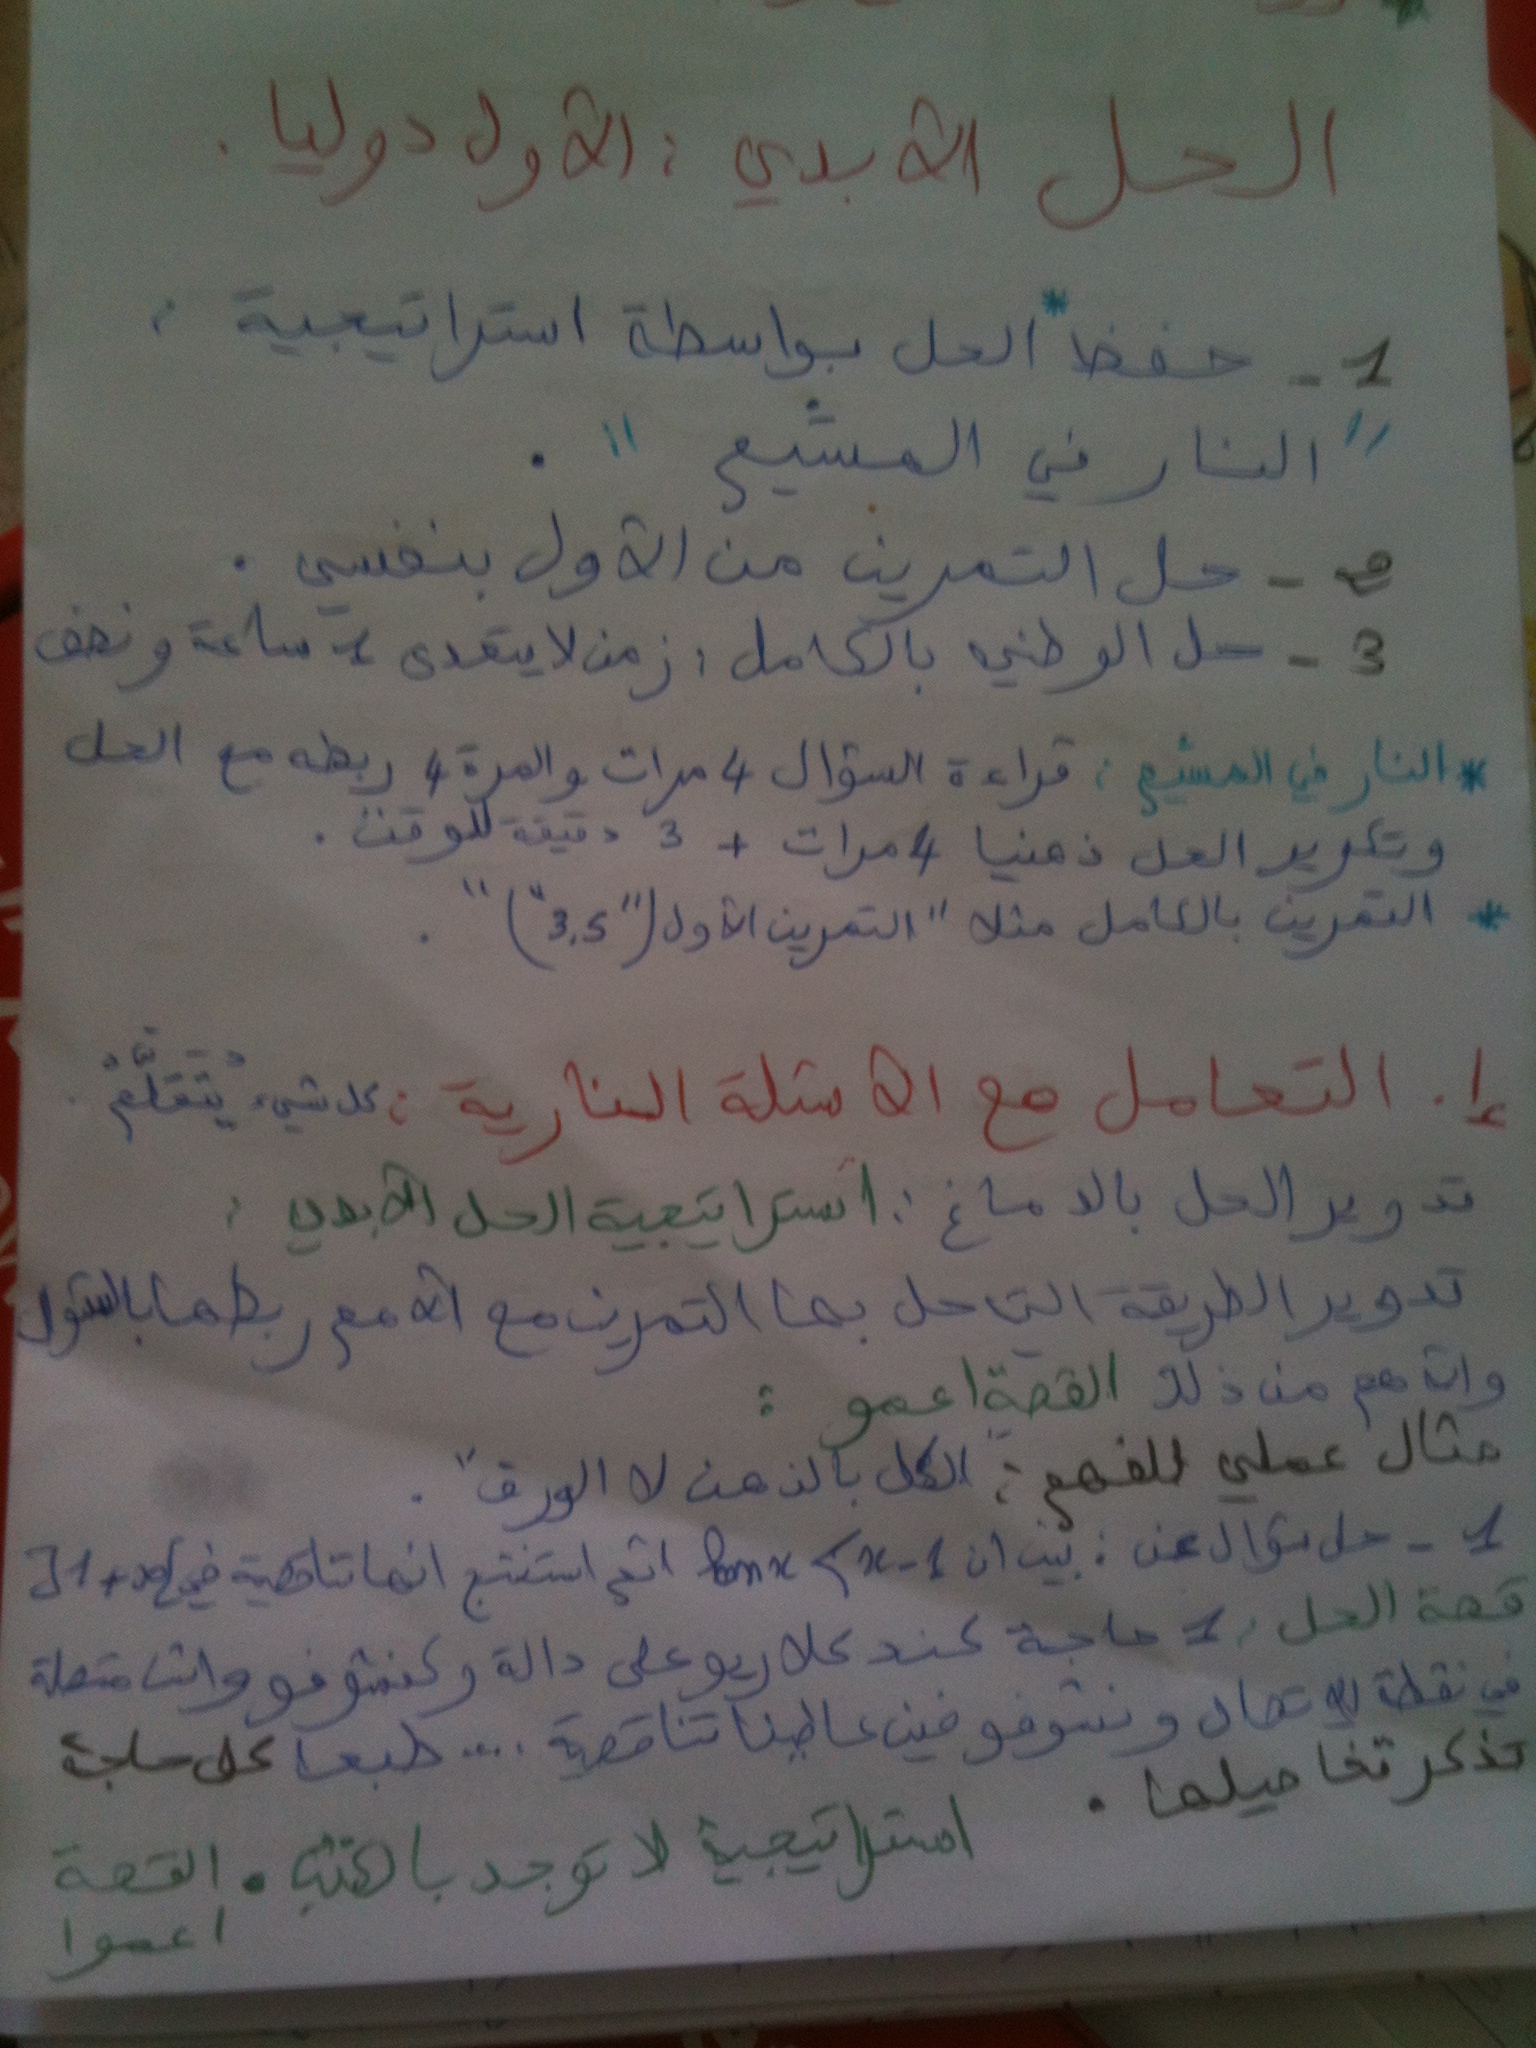 الحل الأبدي : الأول دوليا .
1 - حفظ* الحل بواسطة استراتيجية :
" النار في المشيع " .
2 - حل التمرين من الأول بنفسي .
3 - حل الوطني بالكامل : زمن لا يتعدى 1 ساعة ونصف
* النار في المشيع : قراءة السؤال 4 مرات والمرة 4 ربطه مع الحل
وتكرير الحل ذهنيا 4 مرات + 3 دقيقة للوقت .
* التمرين بالكامل مثلا "التمرين الأول ("3,5")" .
إ. التعامل مع الأسئلة النارية : كل شيء يُتَعَلَّمُ .
تدوير الحل بالدماغ : استراتيجية الحل الأبدي :
تدوير الطريقة التي حل بها التمرين مع الأم مع ربطها بالسؤال
والأهم من ذلك القصة اعمو :
مثال عملي للفهم : "الكل بالذهن لا الورق" .
1 - حل سؤال عن : بين أن lnx < x-1 ثم استنتج انها تناقصية في ]1,+∞[
قصة الحل : 1 حاجة كند كلاريو على دالة وكنشوفو واش متصلة
في نقطة الاتصال ونشوفو فين عاطينا تناقصية .... طبعا كل حاجة
تذكر تفاصيلها .
استراتيجية لا توجد بالكتب . القصة
اعموا